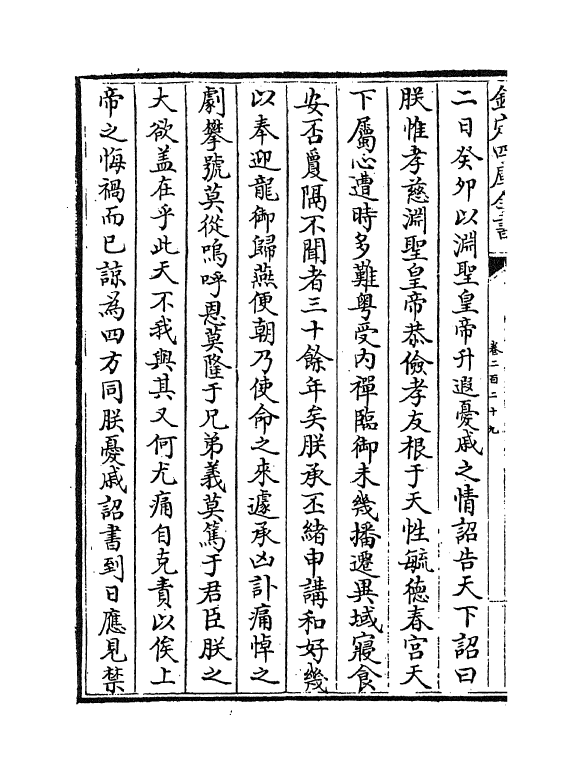 欽定四庫全書
卷二百二十九
二日癸卯以淵聖皇帝升遐憂戚之情詔告天下詔曰
朕惟孝慈淵聖皇帝恭儉孝友根于天性毓徳春宮天
下屬心遭時多難粤受内禪臨御未幾播遷異域寢食
安否敻隔不聞者三十餘年矣朕承丕緒申講和好幾
以奉迎龍御歸燕便朝乃使命之來遽承凶訃痛悼之
劇攀號莫從嗚呼恩莫隆于兄弟義莫篤于君臣朕之
大欲盖在乎此天不我與其又何尤痛自克責以俟上
帝之悔禍而已諒為四方同朕憂戚詔書到日應見禁